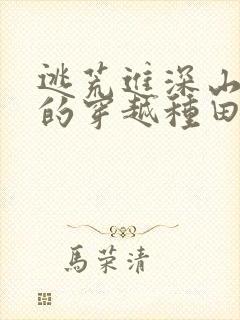 逃荒進深山
的穿越種田
馬荣清